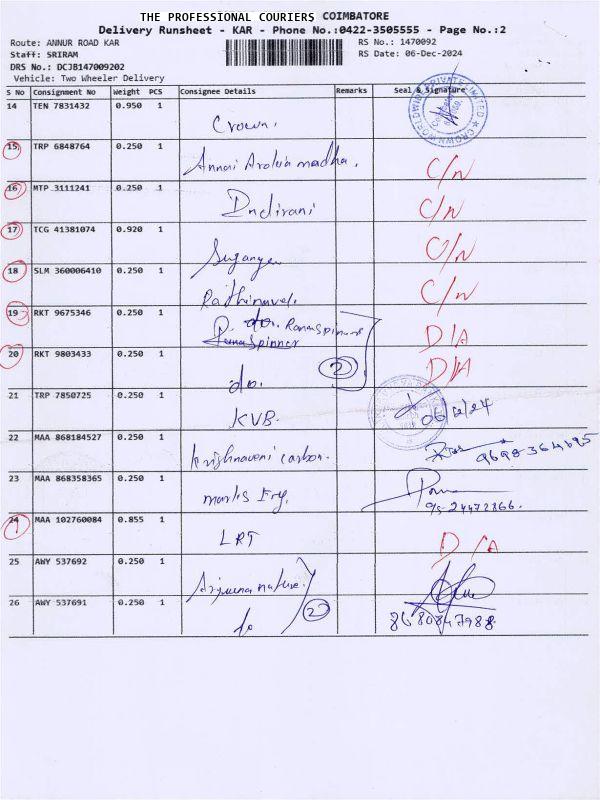 THE PROFESSIONAL COURIERS COIMBATORE
Delivery Runsheet - KAR - Phone No.:0422-3505555 - Page No.:2
Route: ANNUR ROAD KAR RS No.: 1470092
Staff: SRIRAM RS Date: 06-Dec-2024
DRS No.: DCJB147009202
Vehicle: Two Wheeler Delivery
S No Consignment No Weight PCS Consignee Details Remarks Seal & Signature
14 TEN 7831432 0.950 1
Crown.
15 TRP 6848764 0.250 1
Annai madha. C/N
16 MTP 3111241 0.250 1
Indirani C/N
17 TCG 41381074 0.920 1
C/N
18 SLM 360006410 0.250 1
C/N
19 RKT 9675346 0.250 1
do. D/A
20 RKT 9803433 0.250 1
do. 2 D/A
21 TRP 7850725 0.250 1
KVB.
22 MAA 868184527 0.250 1
Krishnaveni carbon.
23 MAA 868358365 0.250 1
24 MAA 102760084 0.855 1
LRT D/A
25 AWY 537692 0.250 1
26 AWY 537691 0.250 1
do 2 8680847988